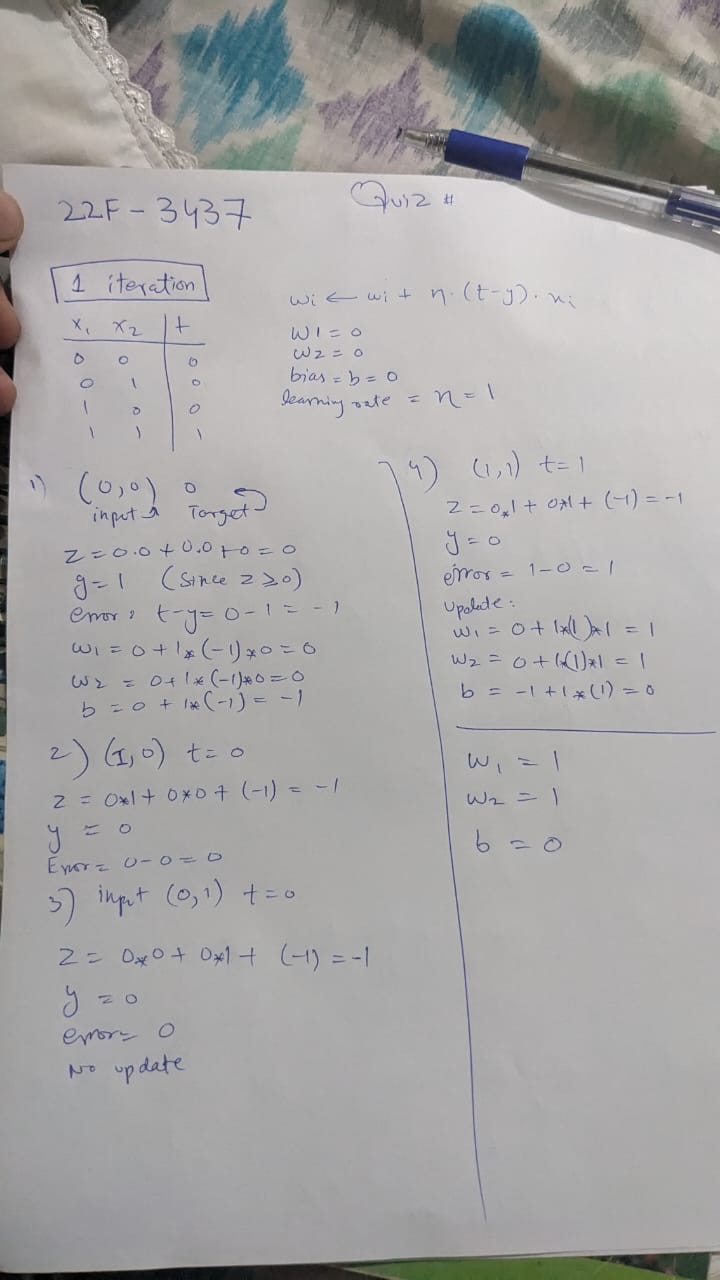 22F - 3437
Quiz #
1 iteration
x₁ x₂ | t
0 0 0
0 1 0
1 0 0
1 1 1
wi ← wi + n.(t-y).xi
W1 = 0
W2 = 0
bias = b = 0
learning rate = n = 1
1) (0,0) 0
input Target
Z = 0.0 + 0.0 + 0 = 0
y = 1 (Since z ≥ 0)
error: t-y = 0-1 = -1
w1 = 0 + 1*(-1)*0 = 0
w2 = 0+1*(-1)*0 = 0
b = 0 + 1*(-1) = -1
2) (1,0) t = 0
z = 0*1 + 0*0 + (-1) = -1
y = 0
Error = 0-0 = 0
3) input (0,1) t = 0
Z = 0*0 + 0*1 + (-1) = -1
y = 0
error = 0
No update
4) (1,1) t = 1
Z = 0*1 + 0*1 + (-1) = -1
y = 0
error = 1-0 = 1
Update:
W1 = 0 + 1*(1)*1 = 1
W2 = 0 + 1*(1)*1 = 1
b = -1 + 1*(1) = 0
W₁ = 1
W₂ = 1
b = 0